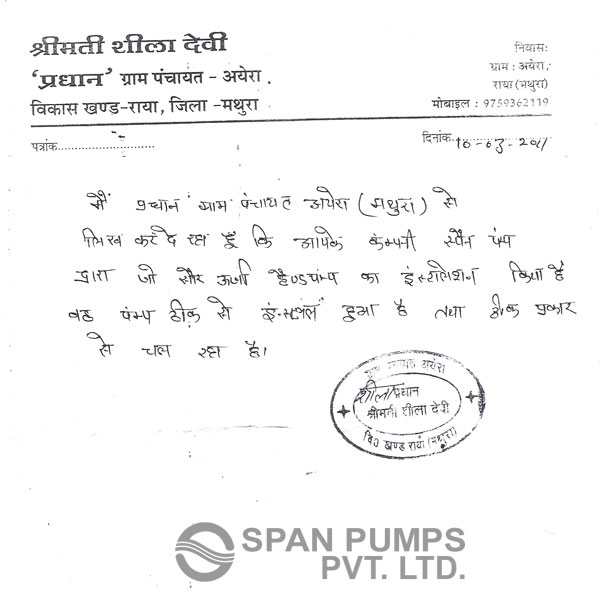 श्रीमती शीला देवी
'प्रधान' ग्राम पंचायत - अयेरा
विकास खण्ड-राया, जिला -मथुरा
निवासः
ग्राम : अयेरा,
राया (मथुरा)
मोबाइल : 9759362119
पत्रांक..............................
दिनांक..10-03-2011
मैं प्रधान ग्राम पंचायत अयेरा (मथुरा) से
लिख कर दे रहा हूँ कि आपके कम्पनी स्पैन पंप
द्वारा जो सौर ऊर्जा हैण्डपम्प का इंस्टालेशन किया है
वह पंम्प ठीक से इंस्टाल हुआ है तथा ठीक प्रकार
से चल रहा है।
अयेरा
शीला प्रधान
श्रीमती शीला देवी
वि० खण्ड राया (मथुरा)
SPAN PUMPS
PVT. LTD.